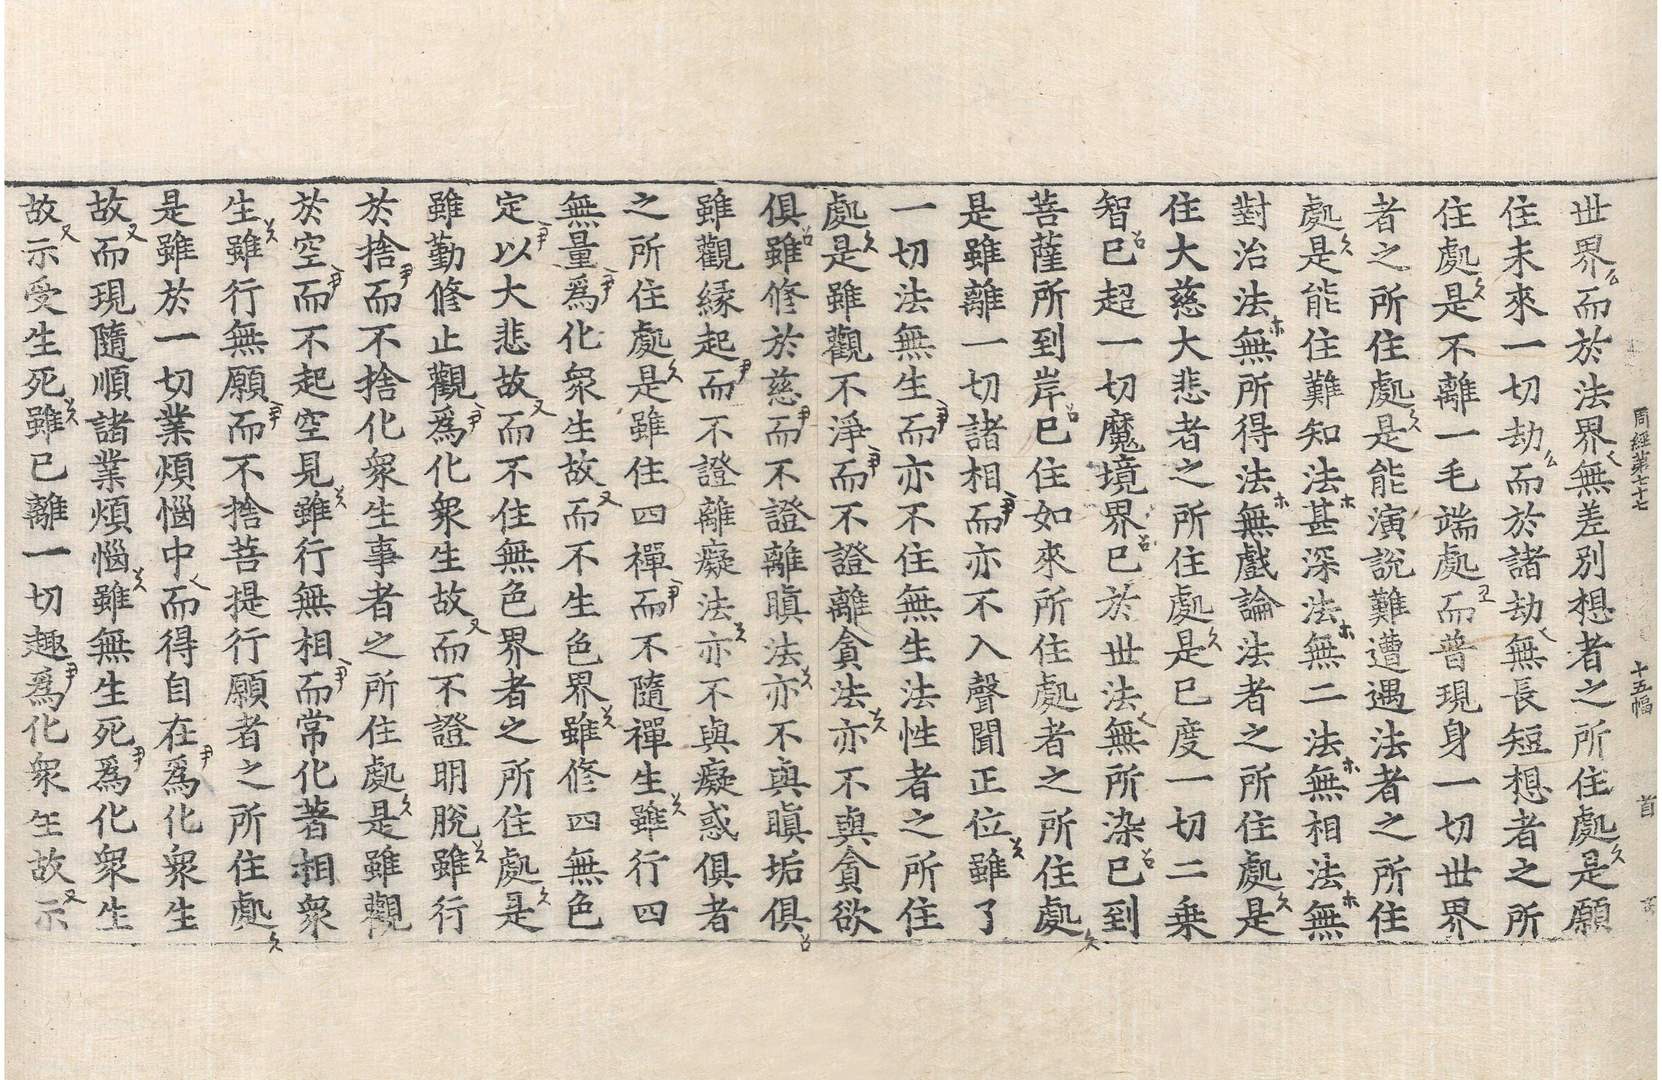 周經第七十七　十五幅　首
世界而於法界無差別想者之所住處是願
住未來一切劫而於諸劫無長短想者之所
住處是不離一毛端處而普現身一切世界
者之所住處是能演說難遭遇法者之所住
處是能住難知法甚深法無二法無相法無
對治法無所得法無戲論法者之所住處是
住大慈大悲者之所住處是已度一切二乗
智已超一切魔境界已於世法無所染已到
菩薩所到岸已住如來所住處者之所住處
是雖離一切諸相而亦不入聲聞正位雖了
一切法無生而亦不住無生法性者之所住
處是雖觀不淨而不證離貪法亦不與貪欲
俱雖修於慈而不證離瞋法亦不與瞋垢俱
雖觀緣起而不證離癡法亦不與癡惑俱者
之所住處是雖住四禪而不隨禪生雖行四
無量爲化衆生故而不生色界雖修四無色
定以大悲故而不住無色界者之所住處是
雖勤修止觀爲化衆生故而不證明脫雖行
於捨而不捨化衆生事者之所住處是雖觀
於空而不起空見雖行無相而常化著相衆
生雖行無願而不捨菩提行願者之所住處
是雖於一切業煩惱中而得自在爲化衆生
故而現隨順諸業煩惱雖無生死爲化衆生
故示受生死雖已離一切趣爲化衆生故示